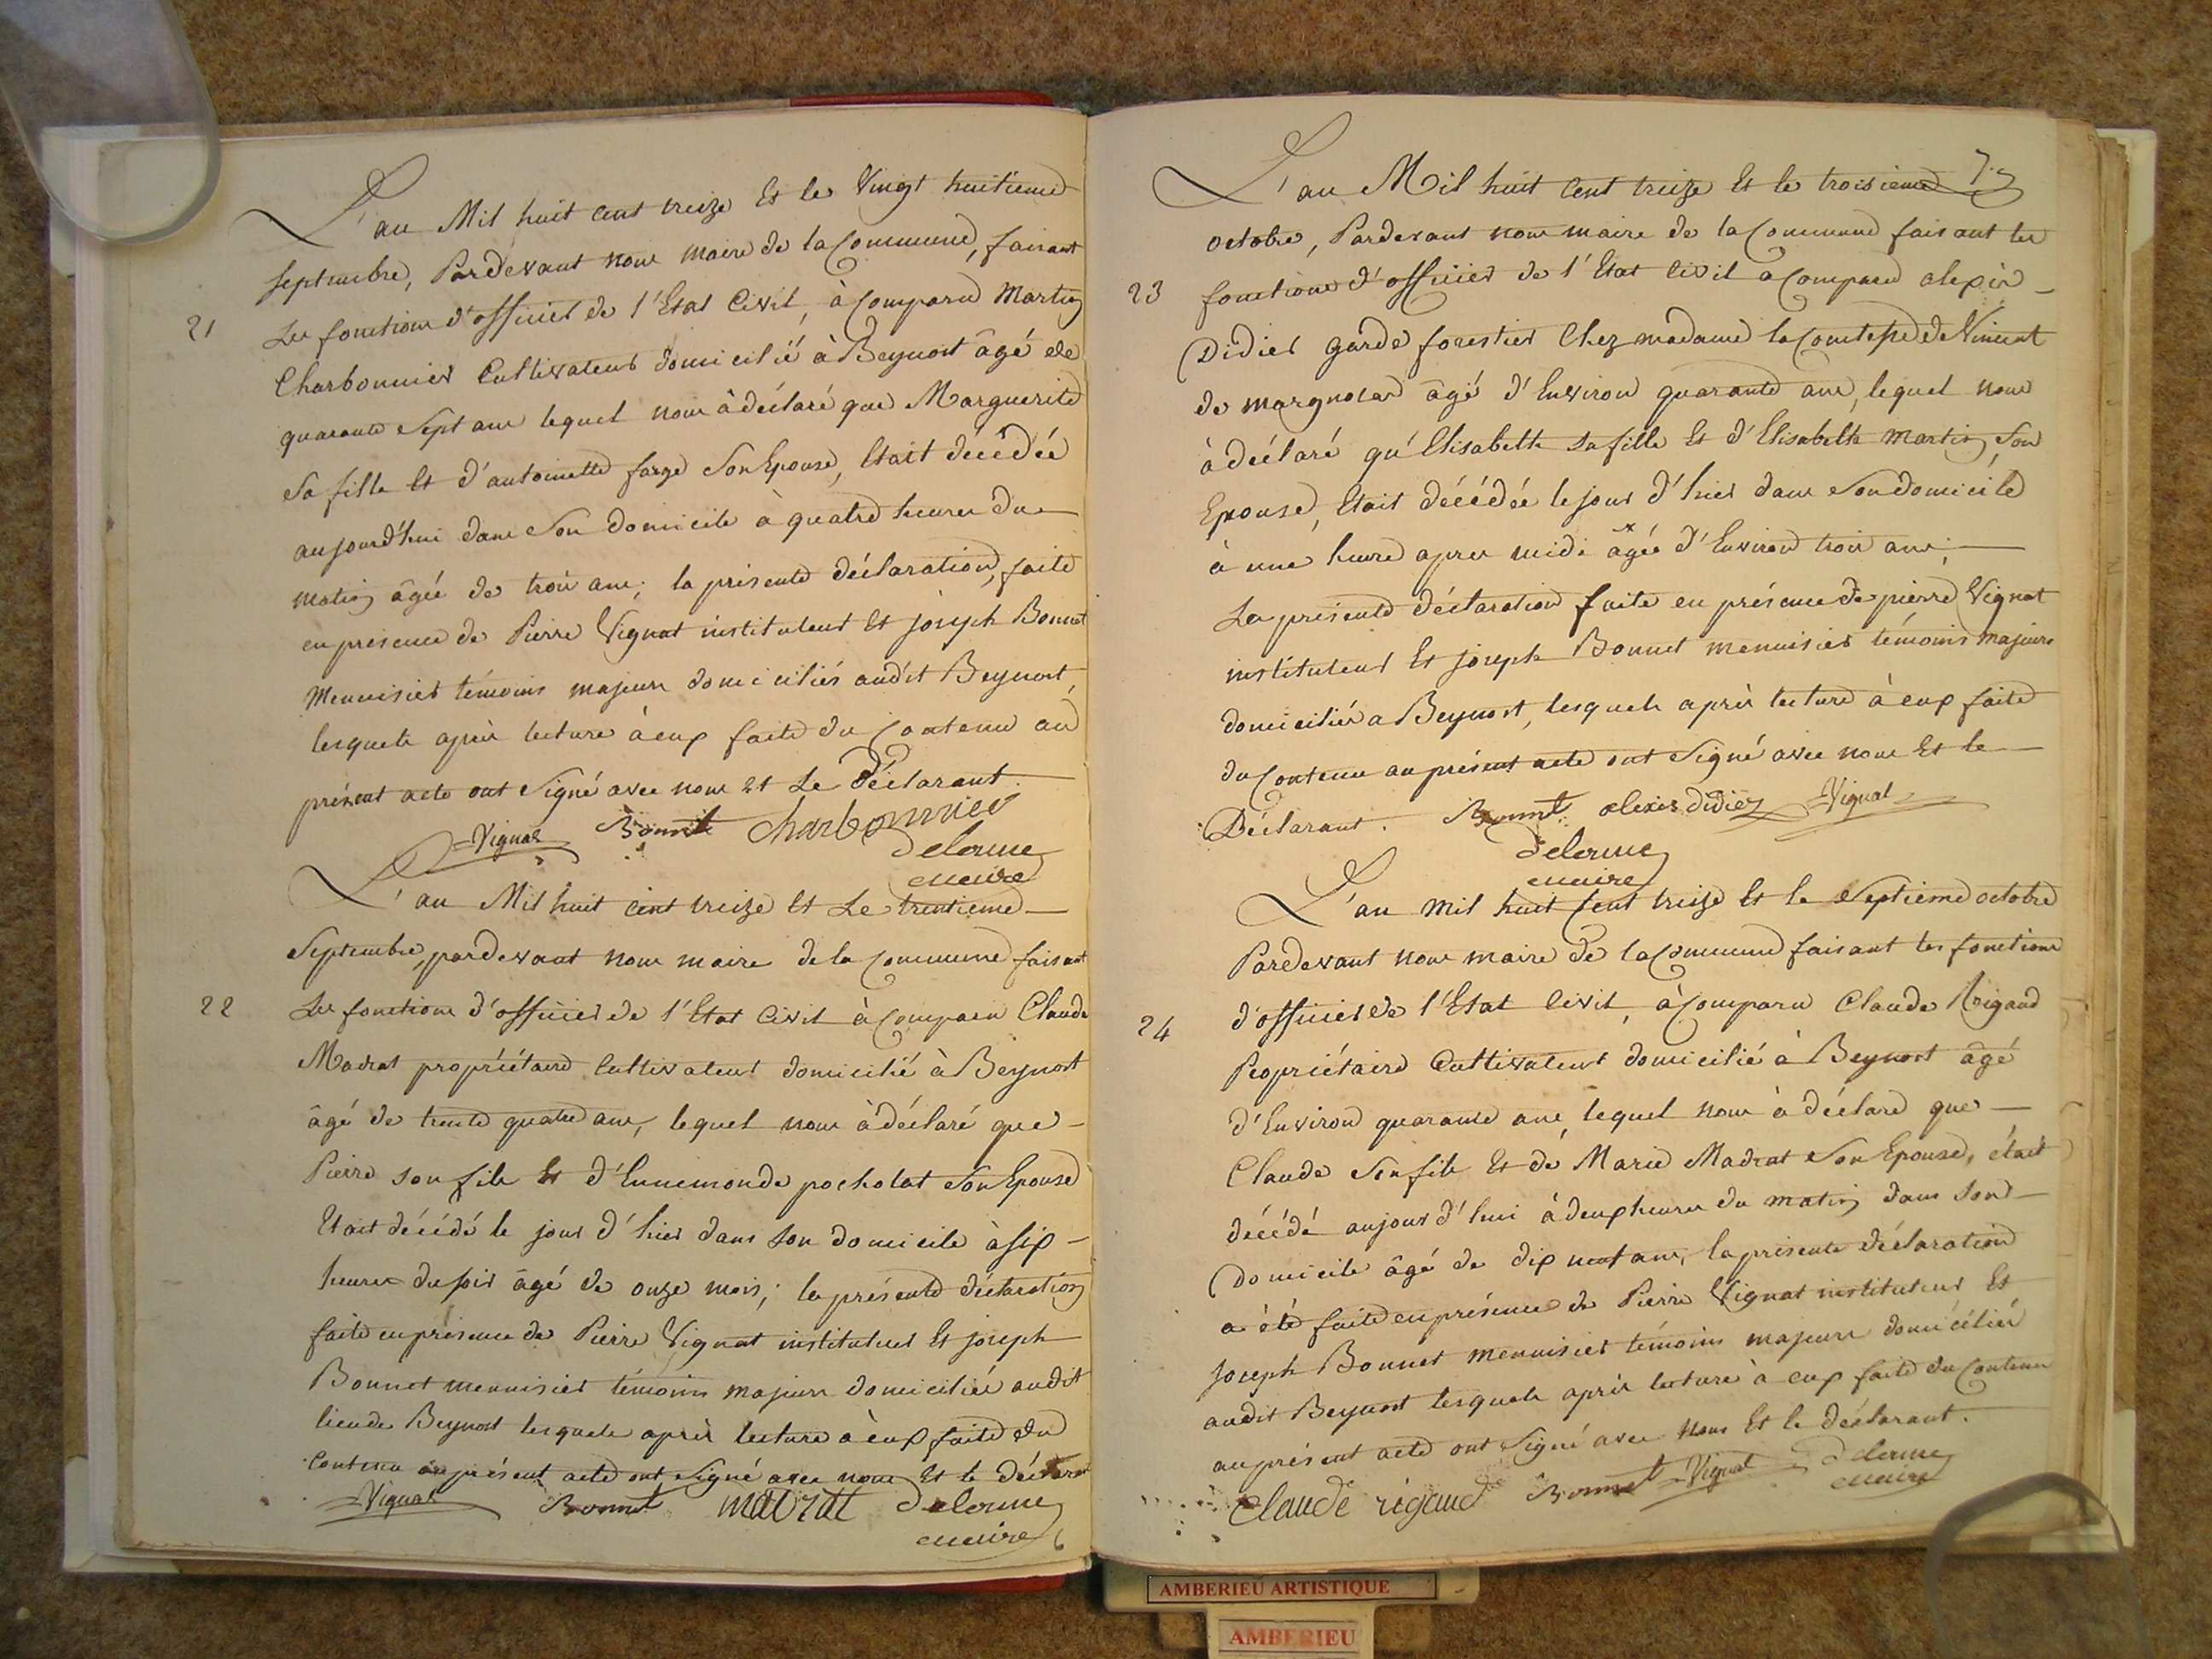 L'an Mil huit cent treize Et le Vingt huitieme
septembre, Pardevant nous maire de la Commune, faisant
21
Les fonctions d'officier de l'Etat Civil, à Comparu Martin
Charbonnier Cultivateur domicilié à Beynost âgé de
quarante Sept ans lequel nous à déclaré que Marguerite
Sa fille Et d'antoinette farge Son Epouse, Etait décédée
aujourd'hui dans Son domicile à quatre heures du
matin âgée de trois ans; la présente déclaration, faite
en présence de Pierre Vignat instituteur Et joseph Bonnet
Menuisier témoins majeurs domiciliés audit Beynost,
lesquels après lecture à eux faite du Contenu au
présent acte ont Signé avec nous Et Le Déclarant.
Vignat Bonnet charbonnier
delorme
maire
L'an Mil huit cent treize Et Le trentieme
Septembre, pardevant nous maire de la Commune faisant
22
Les fonctions d'officier de l'Etat Civil à Comparu Claude
Madrat propriétaire Cultivateur domicilié à Beynost
âgé de trente quatre ans, lequel nous à déclaré que
Pierre son fils Et d'Ennemonde pocholat Son Epouse
Etait décédé le jour d'hier dans Son domicile à six
heures du soir âgé de onze mois; la présente déclaration
faite en présence de Pierre Vignat instituteur Et joseph
Bonnet menuisier témoins majeurs domiciliés audit
lieu de Beynost lesquels après lecture à eux faite du
Contenu au présent acte ont Signé avec nous Et le déclarant
Vignat Bonnet madrat delorme
maire
L'an Mil huit Cent treize Et le troisieme
octobre, Pardevant nous maire de la Commune faisant les
23
fonctions d'officier de l'Etat Civil a Comparu alexis
Didier garde forestier Chez madame la Comtesse de Vincent
de margnolas âgé d'Environ quarante ans, lequel nous
à déclaré qu'Elisabeth Sa fille Et d'Elisabeth martin, Son
Epouse, Etait décédée le jour d'hier dans Son domicile
à une heure apres midi âgée d'Environ trois ans;
La présente déclaration faite en présence de pierre Vignat
instituteur Et joseph Bonnet menuisier témoins majeurs
domiciliés a Beynost, lesquels après lecture à eux faite
du Contenu au présent acte ont Signé avec nous Et le
Déclarant. Bonnet alexis didier Vignat
delorme
maire
L'an mil huit Cent treize Et le Septième octobre
Pardevant nous maire de la Commune faisant les fonctions
24
d'officier de l'Etat Civil, à Comparu Claude Rigaud
Propriétaire Cultivateur domicilié à Beynost âgé
d'Environ quarante ans, lequel nous à déclaré que
Claude Son fils Et de Marie Madrat Son Epouse, était
décédé aujourd'hui à deux heures du matin dans Son
Domicile âgé de dix neuf ans, la présente déclaration
a été faite en présence de Pierre Vignat instituteur Et
Joseph Bonnet menuisier témoins majeurs domiciliés
audit Beynost lesquels après lecture à eux faite du Contenu
au présent acte ont Signé avec Nous Et le déclarant.
Claude rigaud Bonnet Vignat delorme
maire
AMBERIEU ARTISTIQUE
AMBERIEU